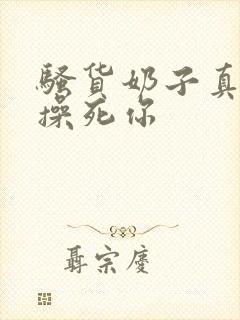 骚货奶子真
操死你
聂宗庆